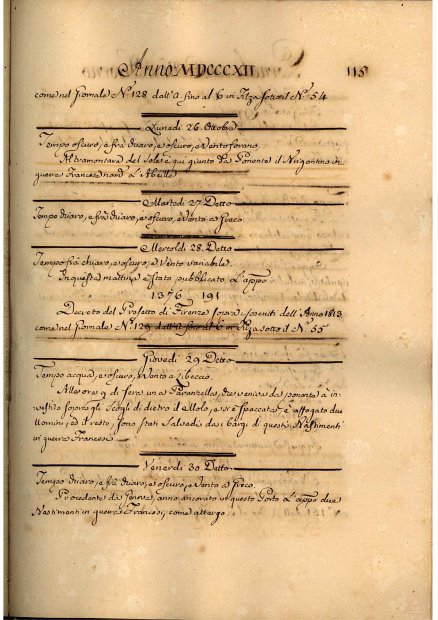 Anno MDCCCXII 115
come nel Giornale Nº 128 dall' a sino al b in Filza sotto il Nº 54
Lunedi 26. Ottobre
Tempo oscuro, e frà chiaro, e oscuro, e Vento forano.
Al tramontare del Sole è qui giunto da Ponente il Brigantino in
guerra Francese nom.º L'Abeille
Martedi 27 Detto
Tempo chiaro, e frà chiaro, e oscuro, e Vento a Greco.
Mercoldi 28. Detto
Tempo frà chiaro, e oscuro, e Vento variabile.
In questa mattina è stato pubblicato l'appo
1376 191
Decreto del Prefetto di Firenze sopra i Coscritti dell'Anno 1813
come nel Giornale Nº 129 dall' a sino al b in Filza sotto il Nº 55
Giovedi 29 Detto
Tempo acqua, e oscuro, e Vento a Libeccio.
Alle ore 9 di sera una Paranzella, che veniva da ponente à
investito sopra gli Scogli di dietro il Molo, e si è spaccata, è affogato due
Uomini, ed il resto, sono stati Salvati dai bargi di questi Bastimenti
in guerra Francesi
Venerdi 30 Detto
Tempo chiaro, e frà chiaro, e oscuro, e Vento a Greco.
Procedente da Genova, anno ancorato in questo Porto l'appo due
Bastimenti in guerra Francesi, come a tergo.